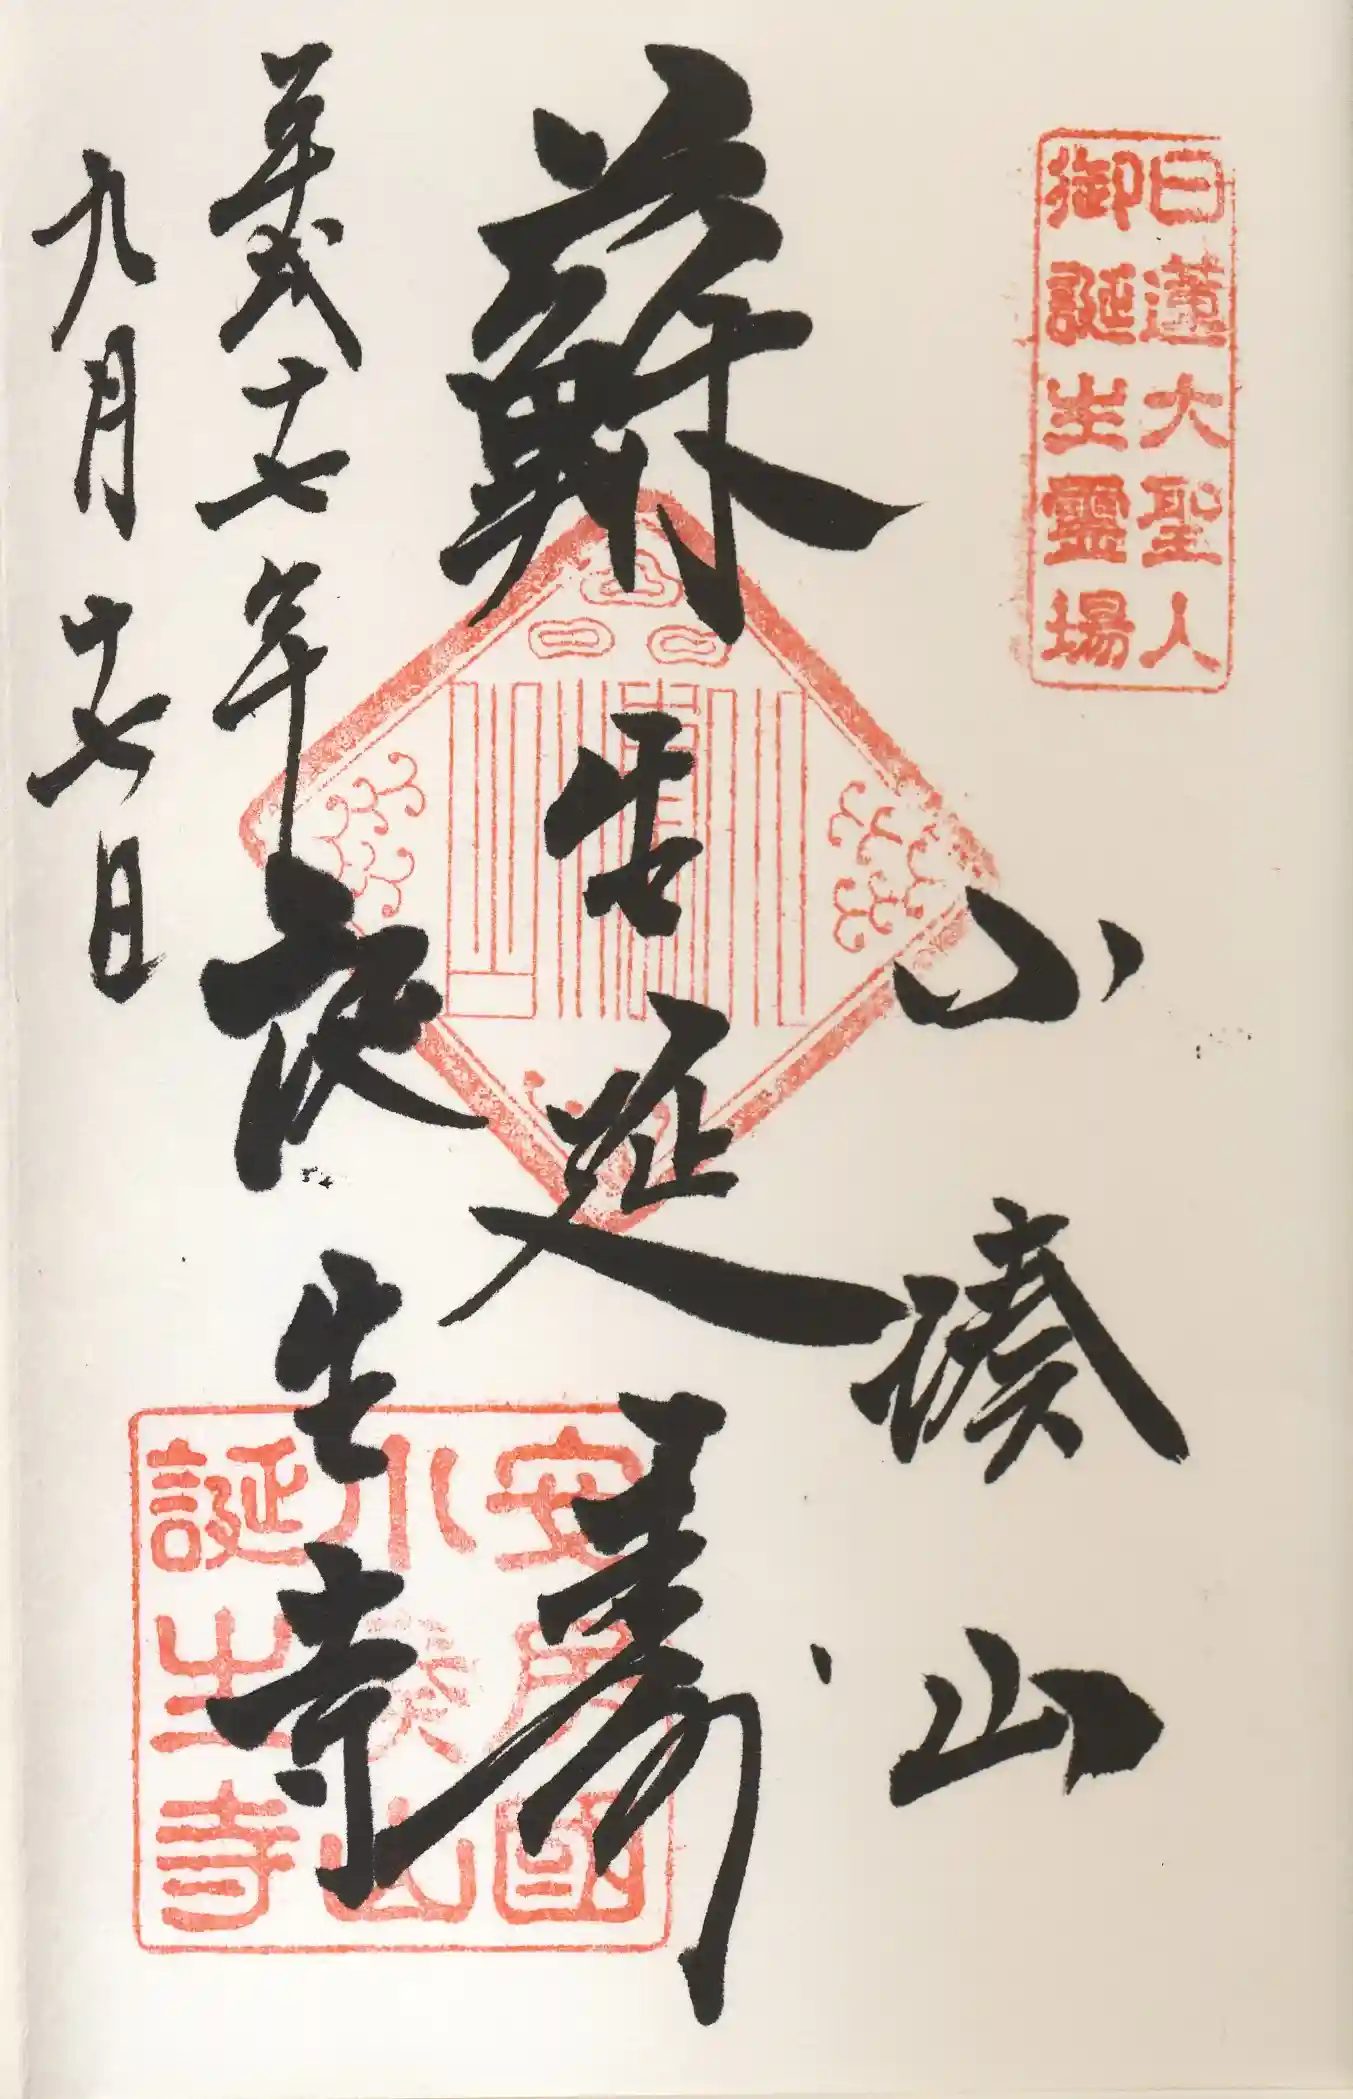 日蓮大聖人
御誕生靈場
小湊山
蘇延壽
平成十七年
九月十七日
誕生寺
安房國
小湊山
誕生寺